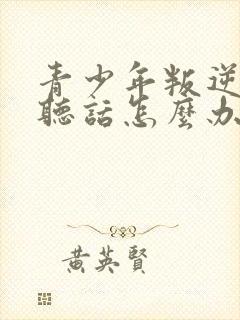 青少年叛逆
聽話怎麼办
黃英賢